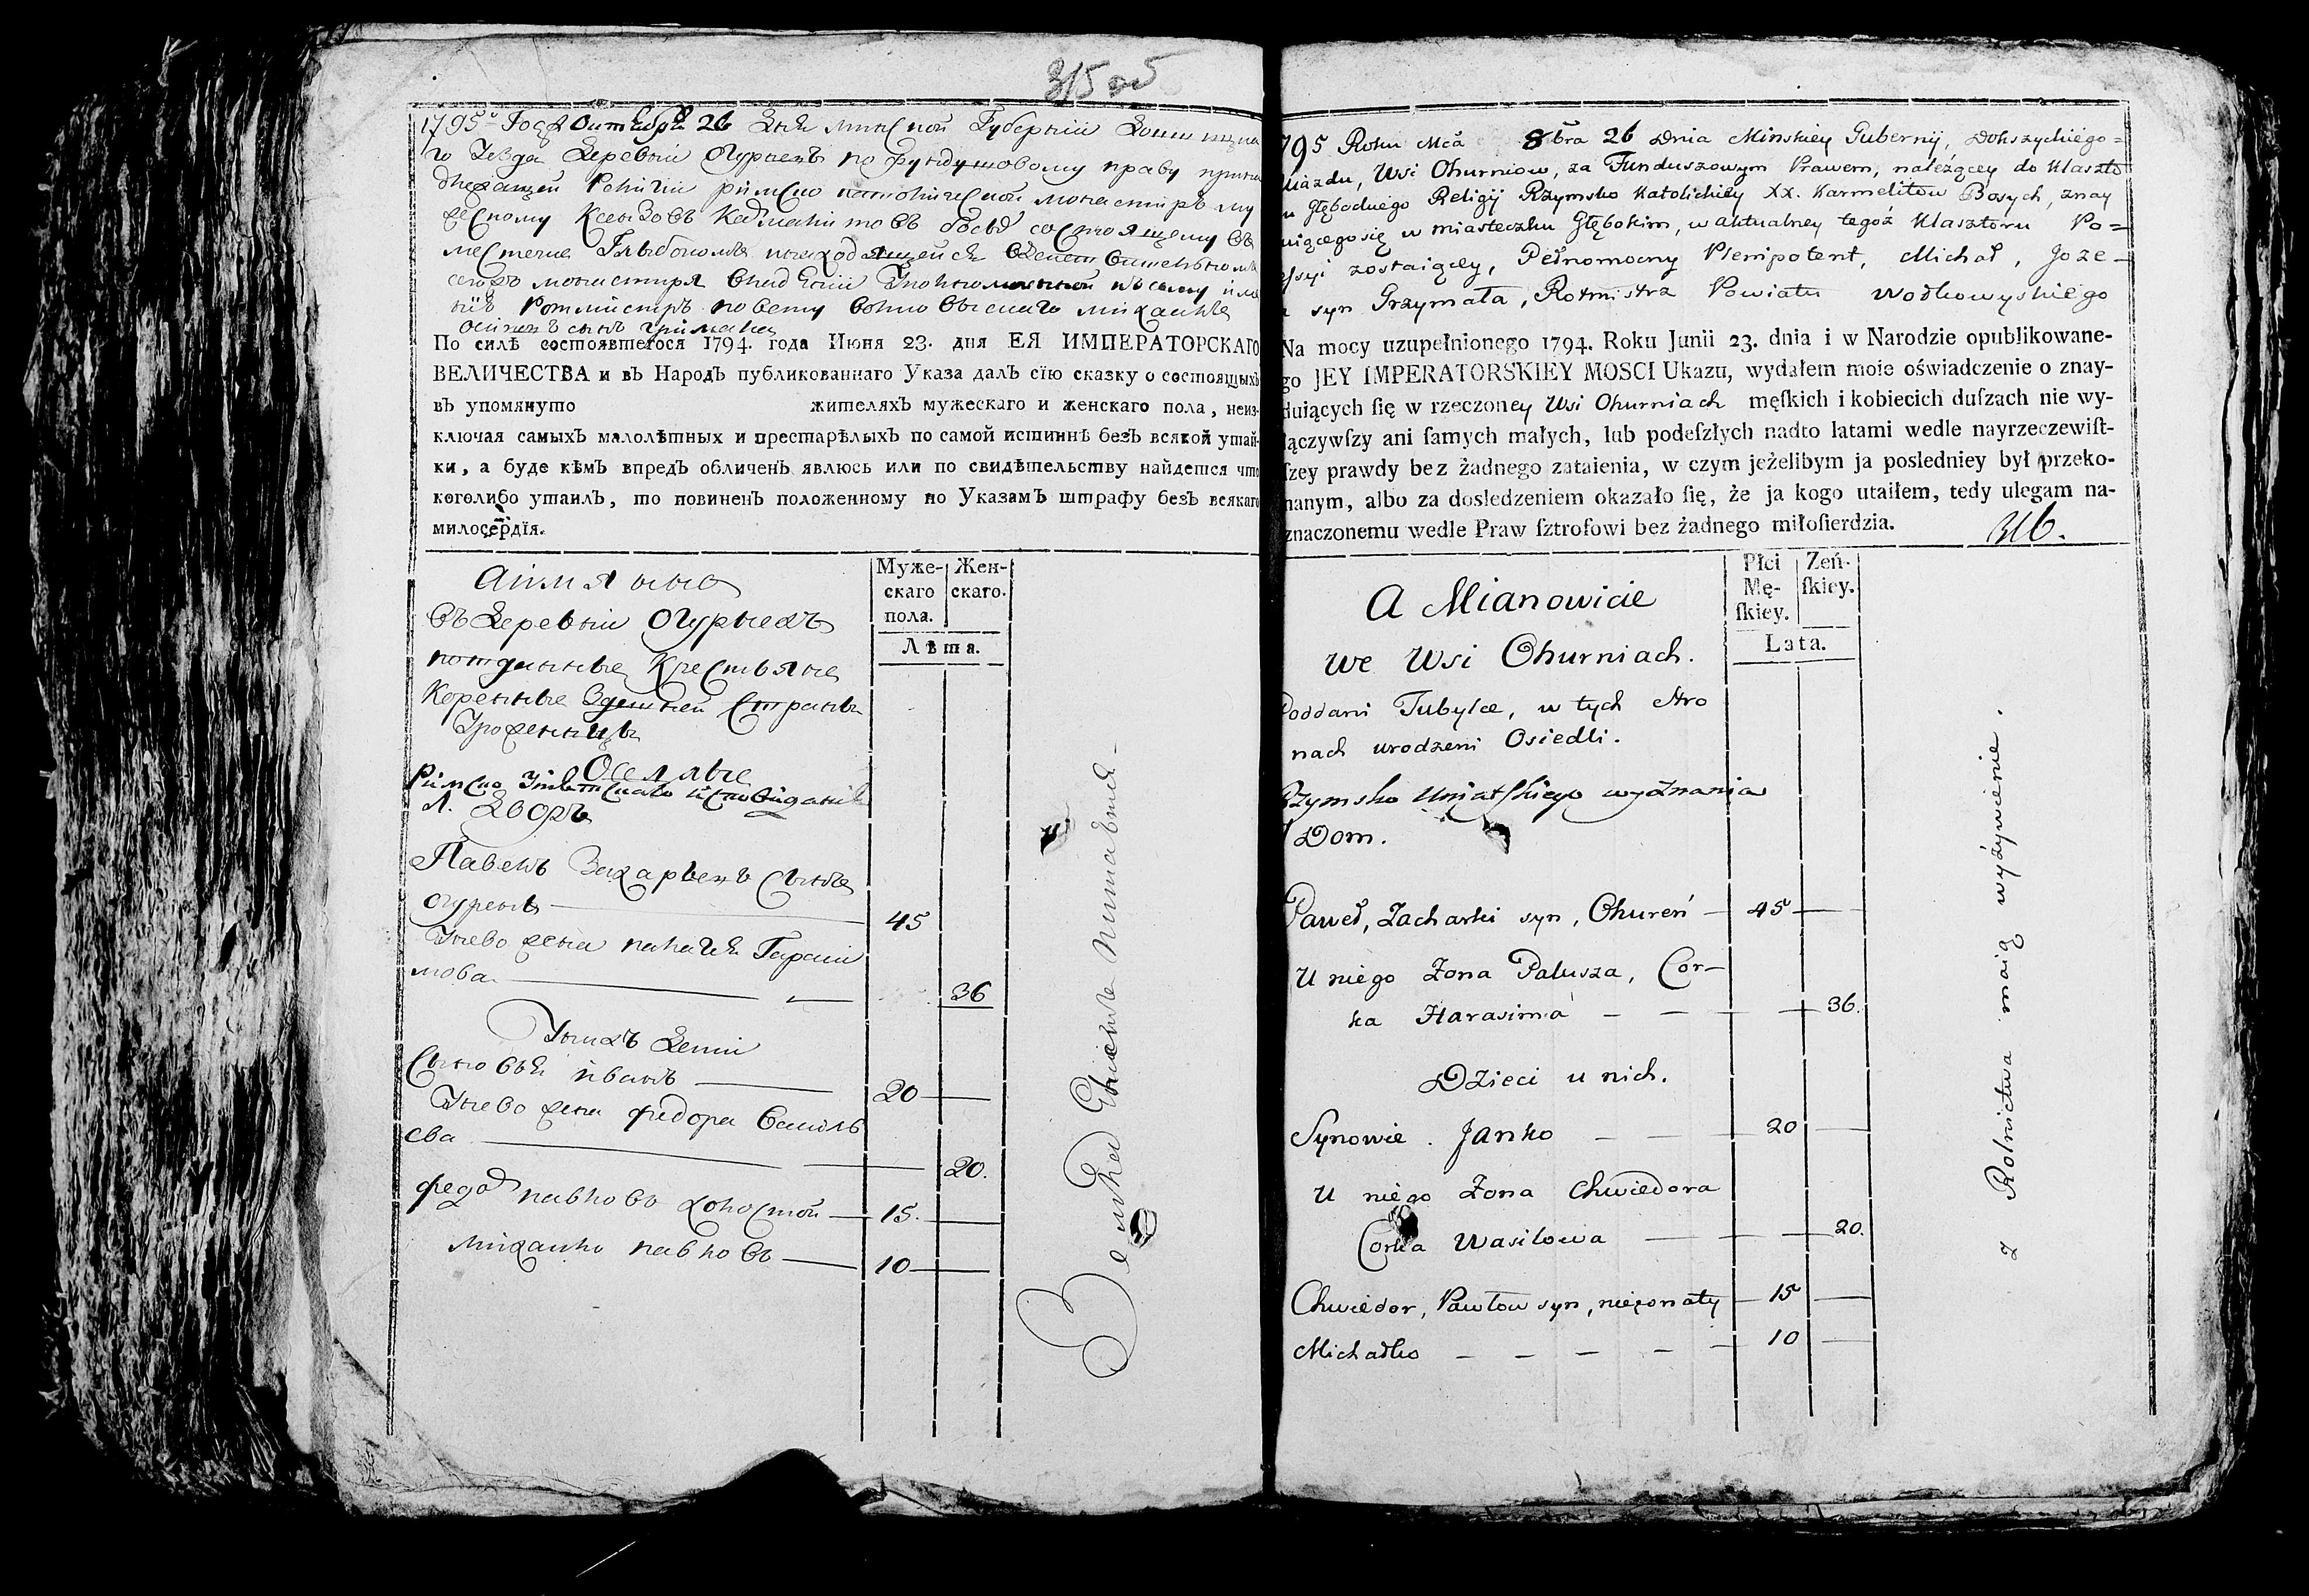 315 об
1795го Года Октября 26 дня Минской Губернии Докшицка
го Уезда Деревни Огурневъ по фундушовому праву прина
длежащей Религии римско католической монастырь му
жескому Ксендзовъ Кармелитовъ босыхъ состоящему въ
местечке Глыбокомъ находящейся
сегожъ монастыря владении
Ротмистръ повету Волковыскаго Михаилъ
Осиповъ сынъ Гримала
По силѣ состоявшегося 1794. года Июня 23. дня ЕЯ ИМПЕРАТОРСКАГО
ВЕЛИЧЕСТВА и въ Народъ публикованнаго Указа далъ сїю сказку о состоящыхъ
въ упомянуто жителяхъ мужескаго и женскаго пола, неиз-
ключая самыхъ малолѣтныхъ и престарѣлыхъ по самой истиннѣ безъ всякой утай-
ки, а буде кѣмъ впредъ обличенъ явлюсь или по свидѣтельству найдется что
коголибо утаилъ, то повиненъ положенному по Указамъ штрафу безъ всякаго
милосердїя.
Муже-скаго пола. Жен-скаго.
Лѣта.
А имянно
Въ Деревни Огурнехъ
подданные Крестьяне
Коренные Здешней Страны
Уроженцы
Оселлые
Римско Униатскаго исповидания
1. Дворъ
Павелъ Захарьевъ Сынъ
Огурень 45
У нево жена Палагея Гараси
мова 36
У нихъ Дети
Сыновья Иванъ 20
У нево жена Федора Василь
ева 20.
Федоръ Павловъ Холостой 15.
Михалко Павловъ 10
Землед
1795 Roku Mca 8bra 26 Dnia Minskiey Gubernij, Dokszyckiego=
Uiazdu, Wsi Ohurniow, za Funduszowym Prawem, należącey do Klaszto
u Głębockiego Religij Rzymsko Katolickiey XX. Karmelitow Bosych, znay
uiącego się w miasteczku Głębokim, w aktualney tegoż Klasztoru Po=
ssyi zostaiącey, Pełnomocny Plenipotent, Michał, Joze-
a syn Grzymała, Rotmistrz Powiatu Wołkowyskiego
Na mocy uzupełnionego 1794. Roku Junii 23. dnia i w Narodzie opublikowane-
go JEY IMPERATORSKIEY MOSCI Ukazu, wydałem moie oświadczenie o znay-
duiących ſię w rzeczoney Wsi Ohurniach męſkich i kobiecich duſzach nie wy-
łączywſzy ani ſamych małych, lub podeſzłych nadto latami wedle nayrzeczewiſt-
ſzey prawdy bez żadnego zataienia, w czym jeżelibym ja posledniey był przeko-
nanym, albo za dosledzeniem okazało ſię, że ja kogo utaiłem, tedy ulegam na-
znaczonemu wedle Praw ſztrofowi bez żadnego miłoſierdzia.
316.
Płci Mę-ſkiey. Zeń-ſkiey.
Lata.
A Mianowicie
We Wsi Ohurniach.
Poddani Tubylce, w tych Stro
nach urodzeni Osiedli.
Rzymsko Uniatſkiego wyznania
1 Dom.
Paweł, Zacharki syn, Ohureń 45
U niego Zona Palusza, Cor-
ka Harasima 36.
Dzieci u nich.
Synowie. Janko 20
U niego Zona Chwiedora
Corka Wasilowa 20.
Chwiedor, Pawłow syn, nieżonaty 15
Michałko 10
z Rolnictwa maią wyżywienie.